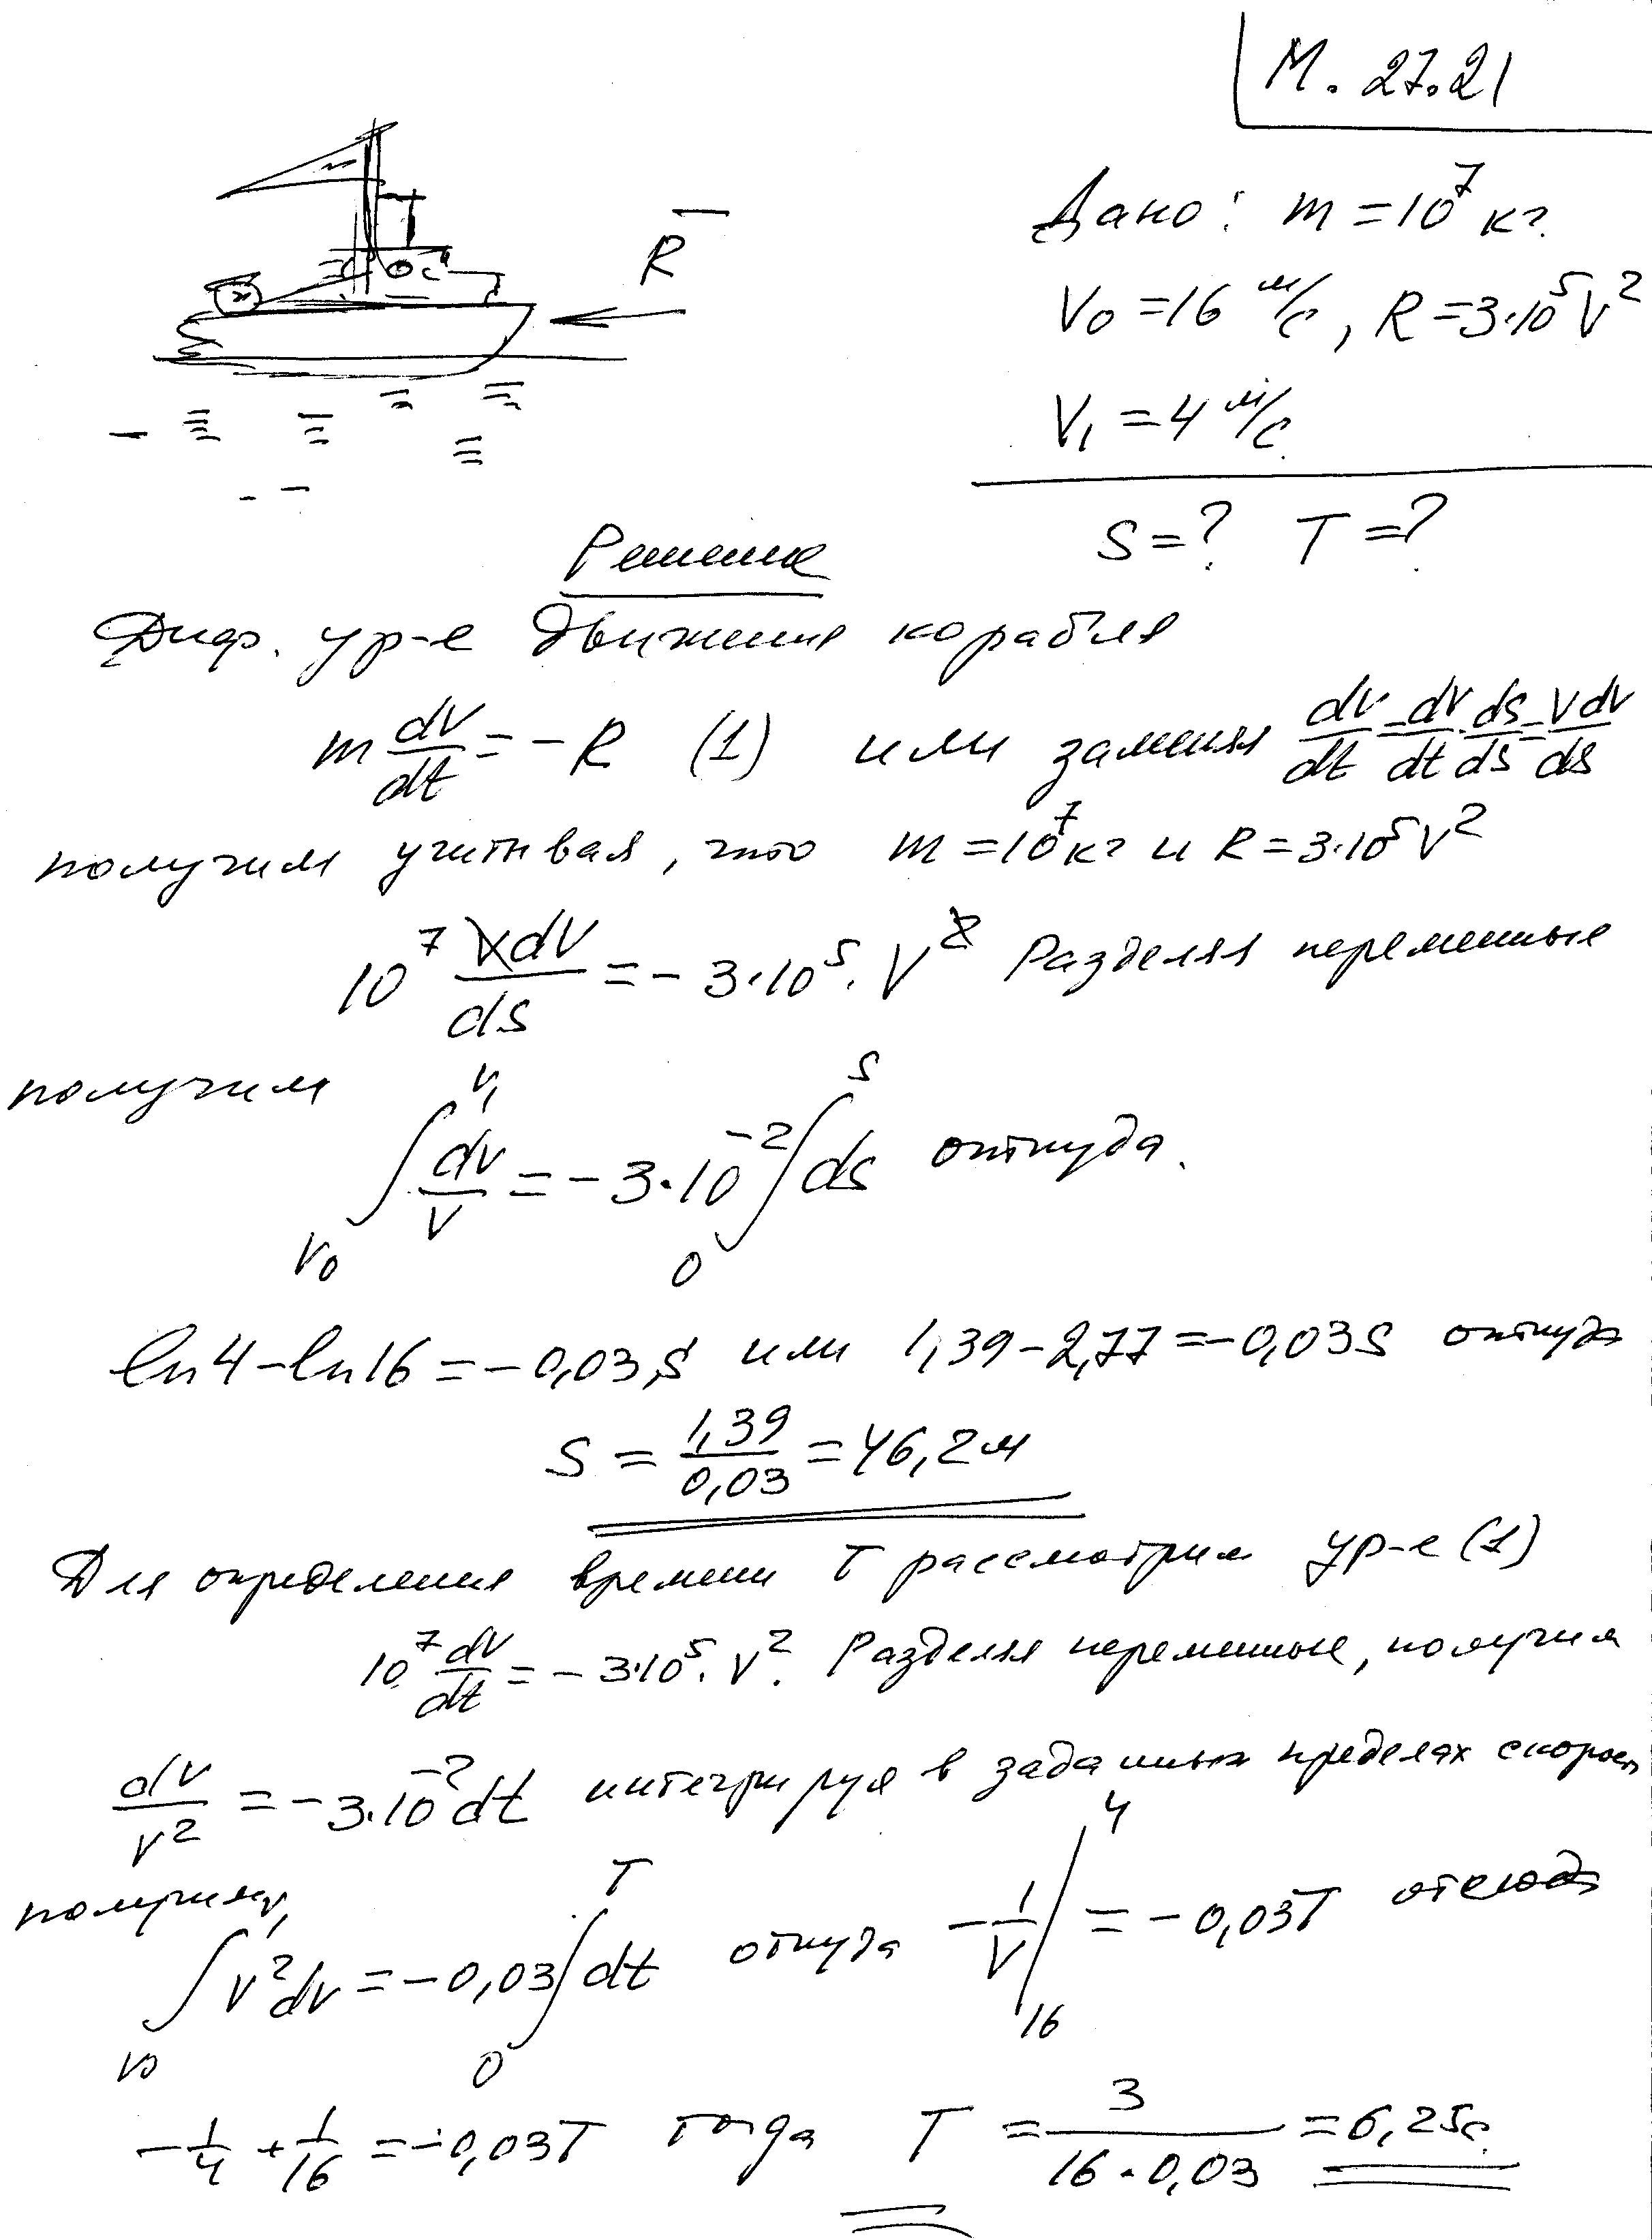 М. 27.21
R̄
Дано: m = 10⁷ кг.
V₀ = 16 м/с, R = 3·10⁵V²
V₁ = 4 м/с.
S = ? T = ?
Решение
Диф. ур-е движения корабля
m dv/dt = -R (1) или заменяя dv/dt = dv/dt · ds/ds = vdv/ds
получим учитывая, что m = 10⁷ кг и R = 3·10⁵V²
10⁷ VdV/ds = -3·10⁵·V² Разделяя переменные
получим ∫_{V₀}^{V₁} dv/v = -3·10⁻² ∫_0^S ds откуда.
ln4 - ln16 = -0,03S или 1,39 - 2,77 = -0,03S откуда
S = 1,39/0,03 = 46,2 м
Для определения времени T рассмотрим ур-е (1)
10⁷ dv/dt = -3·10⁵·V². Разделяя переменные, получим
dv/v² = -3·10⁻²dt интегрируя в заданных пределах скорост
получим ∫_{V₀}^{V₁} V²dv = -0,03 ∫_0^T dt откуда -1/V |_{16}^{4} = -0,03T отсюда
-1/4 + 1/16 = -0,03T тогда T = 3/(16·0,03) = 6,25с.